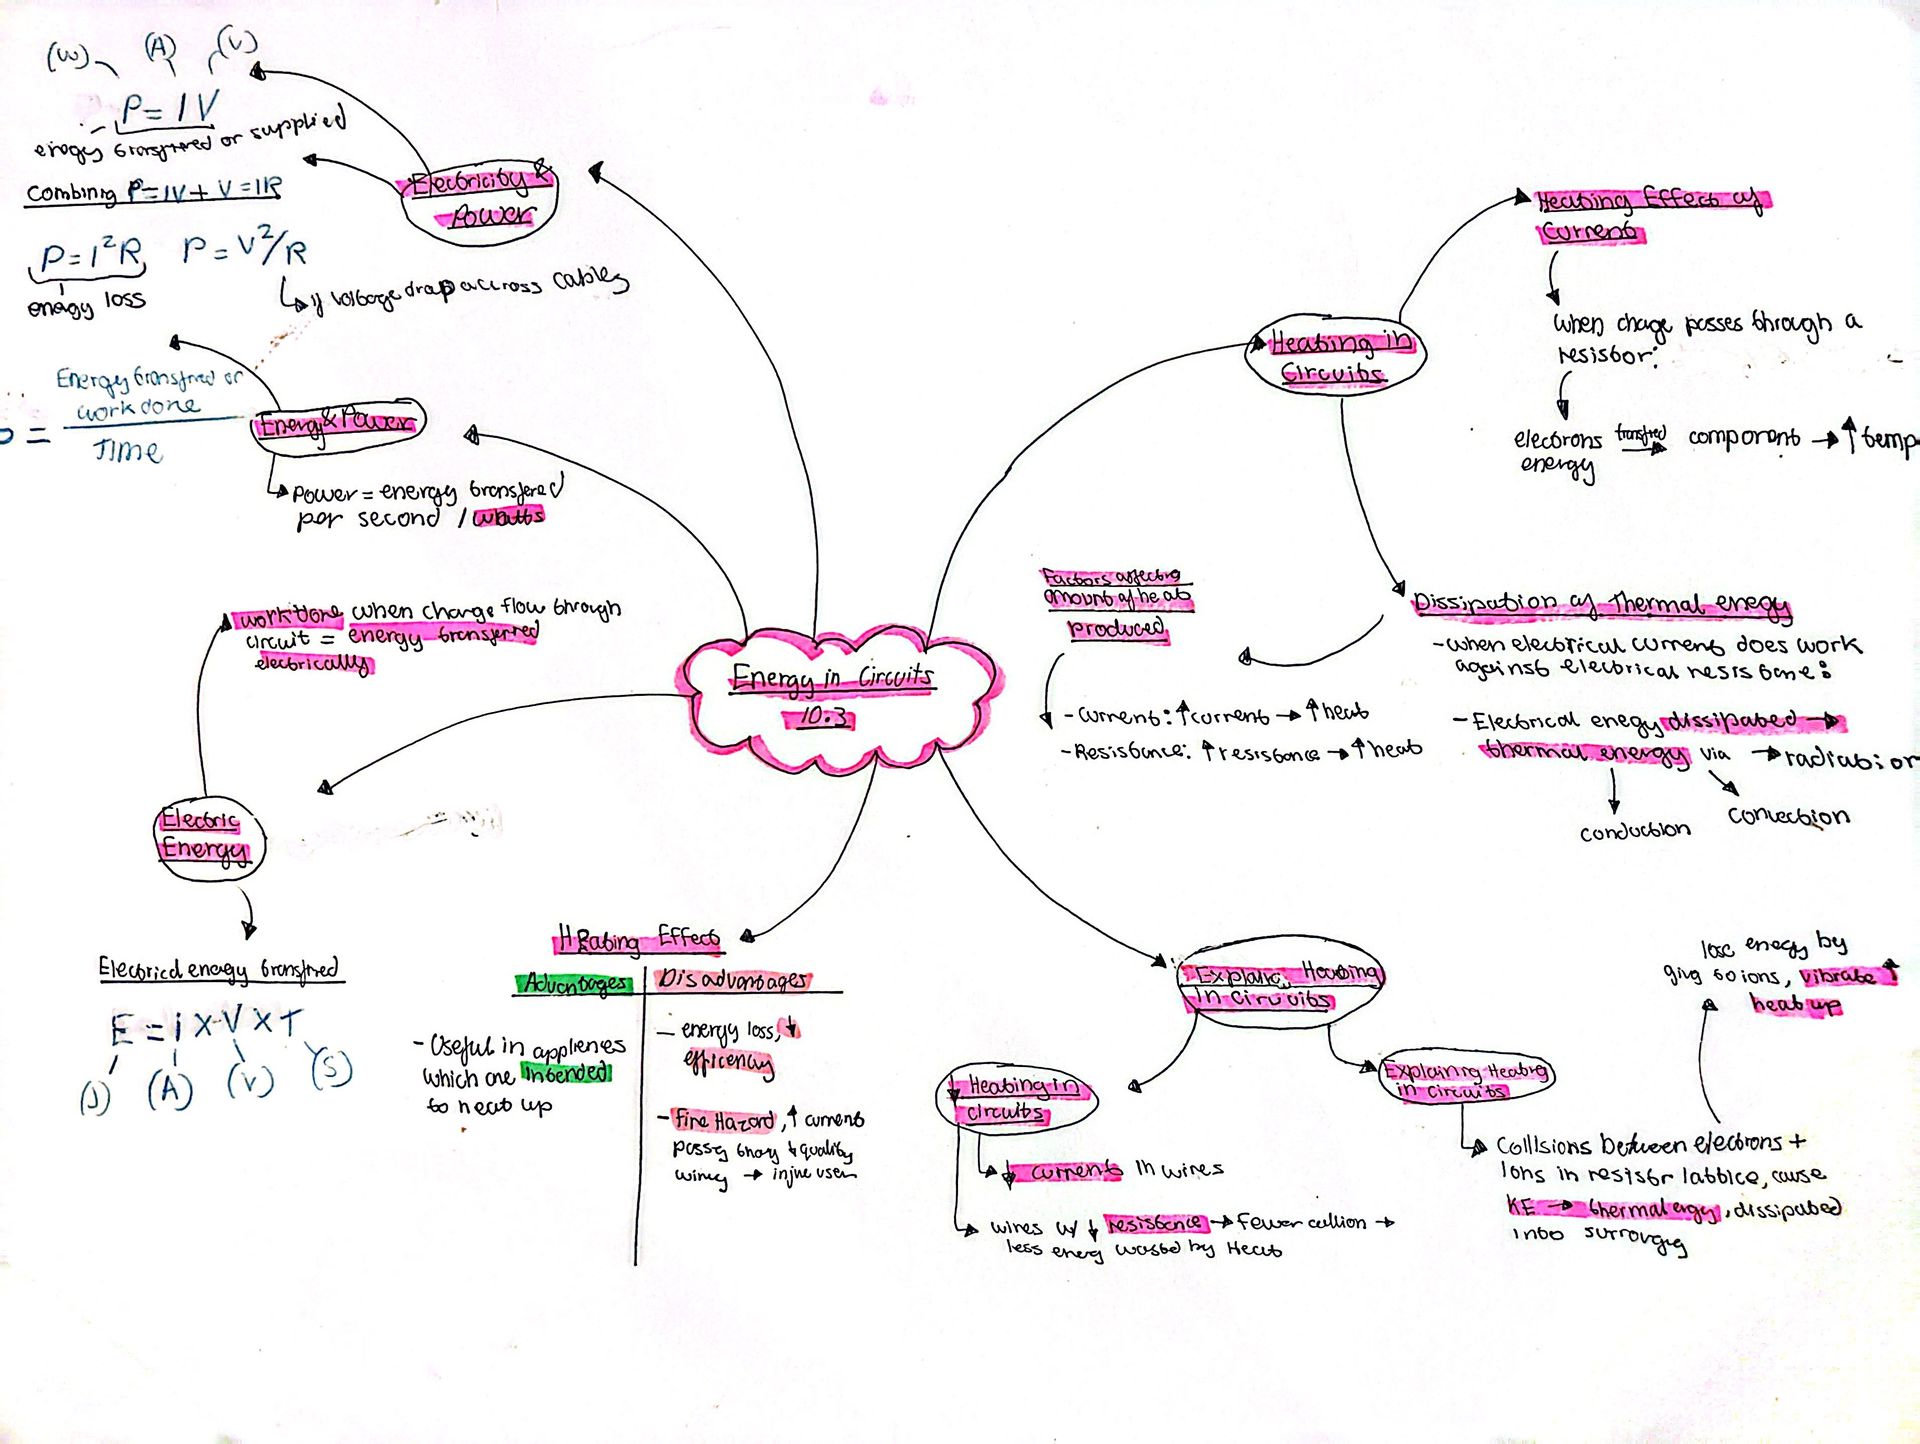 (W) (A) (V)
P = IV
energy transfered or supplied
Combining P=IV + V=IR
P=I²R P=V²/R
energy loss
if voltage drop accross cables
Electricity &
Power
Energy transfred or
work done
=
Time
Energy & Power
Power = energy transfered
per second / Watts
work done when charge flow through
circuit = energy transferred
electrically
Electric
Energy
Electrical energy transfred
E = i x V x T
(J) (A) (V) (S)
Energy in Circuits
10.3
Heating Effect
Advantages Disadvantages
- Useful in
which are intended
to heat up
- energy loss, ↓
efficency
- Fire Hazard, ↑ current
↓ quality
wiring → injure user
Heating in
Circuits
Heating Effect of
Current
when charge passes through a
resistor:
electrons transfred component → ↑ temp
energy
Dissipation of Thermal enegy
- when electrical current does work
against electrical resistane:
- Electrical enegy dissipated →
thermal energy via → radiation
conduction
convection
Factors affecting
amount of heat
produced
- Current: ↑ current → ↑ heat
- Resistance: ↑ resistance → ↑ heat
Heating
in circuits
↓ Heating in
circuits
↓ current in wires
wires w/ ↓ resistance → Fewer →
less energ wasted by Heat
Explaining Heating
in circuits
Collisions between electrons +
Ions in lattice, cause
KE → thermal , dissipated
into
lose enegy by
to ions, vibrate ↑
heat up